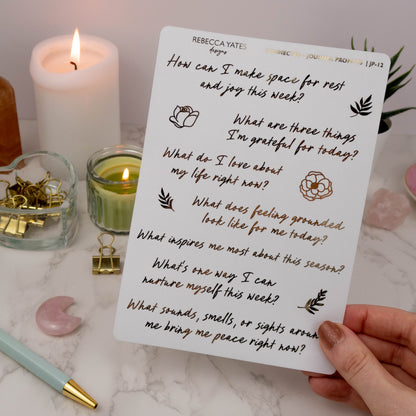 REBECCA YATES
designs
CONNECTION JOURNAL PROMPTS | JP-12
How can I make space for rest
and joy this week?
What are three things
I'm grateful for today?
What do I love about
my life right now?
What does feeling grounded
look like for me today?
What inspires me most about this season?
What's one way I can
nurture myself this week?
What sounds, smells, or sights around
me bring me peace right now?